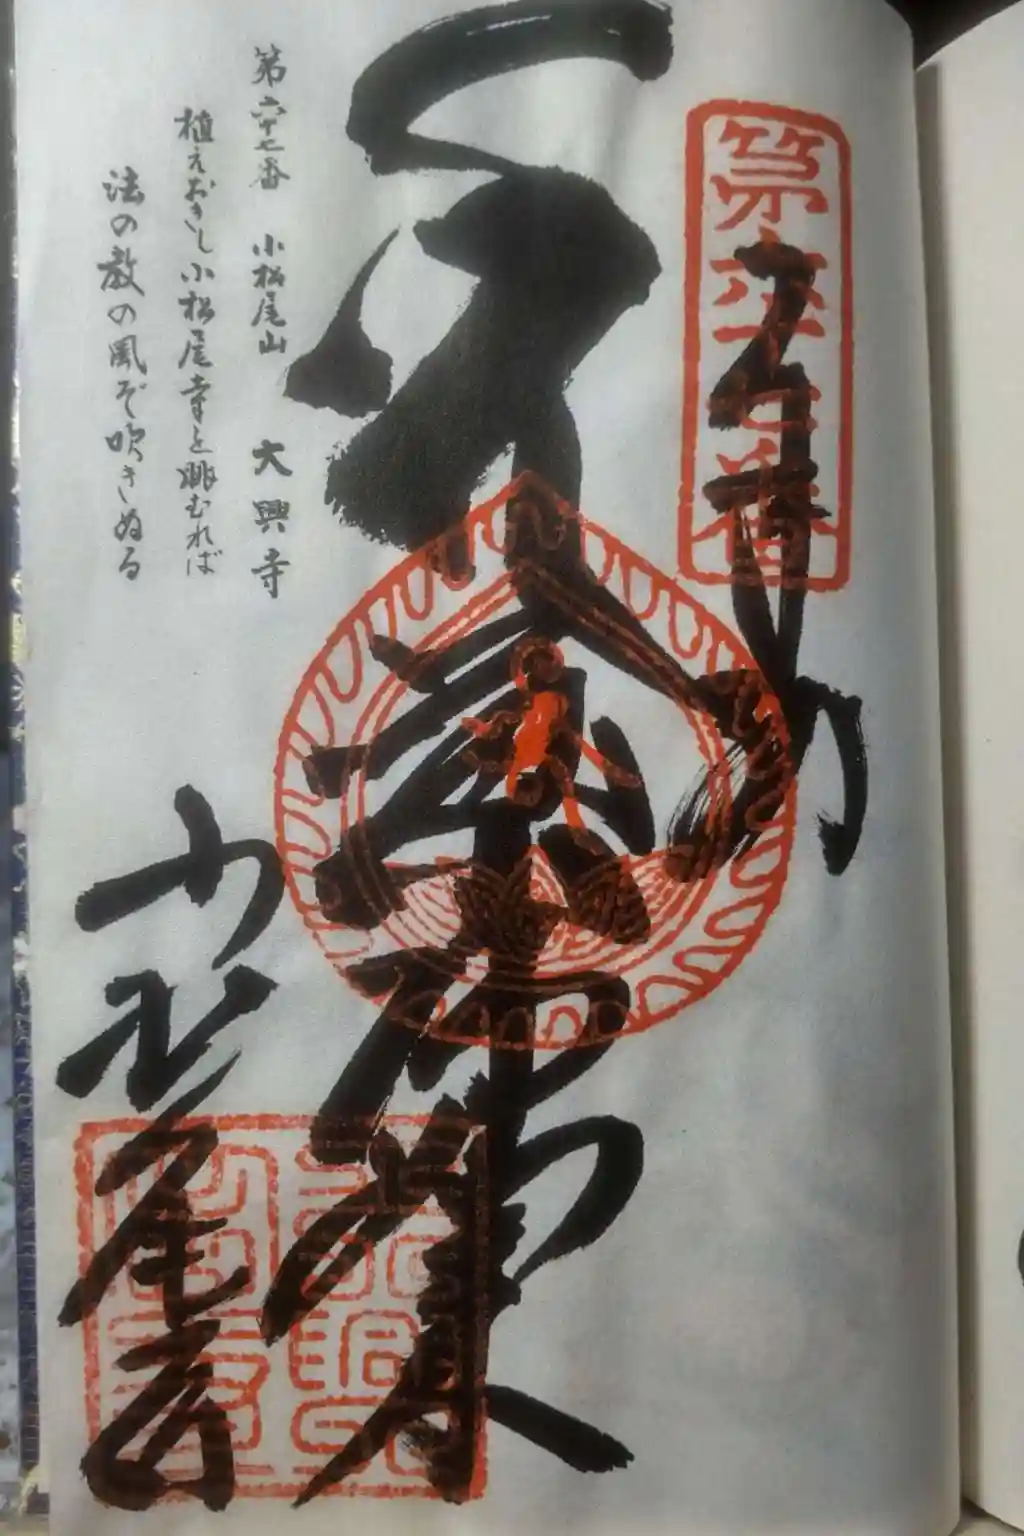 第六十七番
奉納
薬師如来
小松尾寺
第六十七番 小松尾山 大興寺
植えおきし小松尾寺を眺むれば
法の教の風ぞ吹きぬる